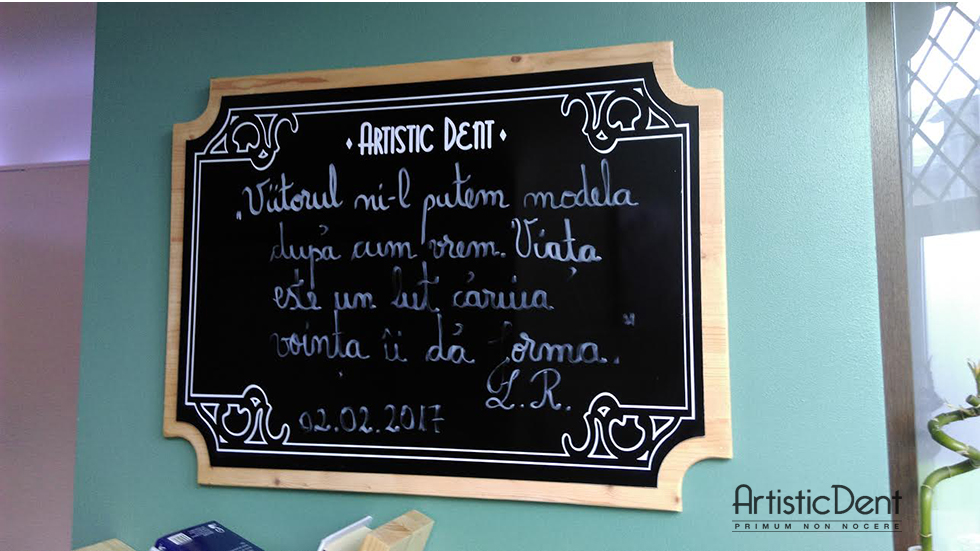 ARTISTIC DENT
„Viitorul ni-l putem modela
după cum vrem. Viața
este un lut căruia
voința îi dă forma.”
L.R.
02.02.2017
ArtisticDent
PRIMUM NON NOCERE